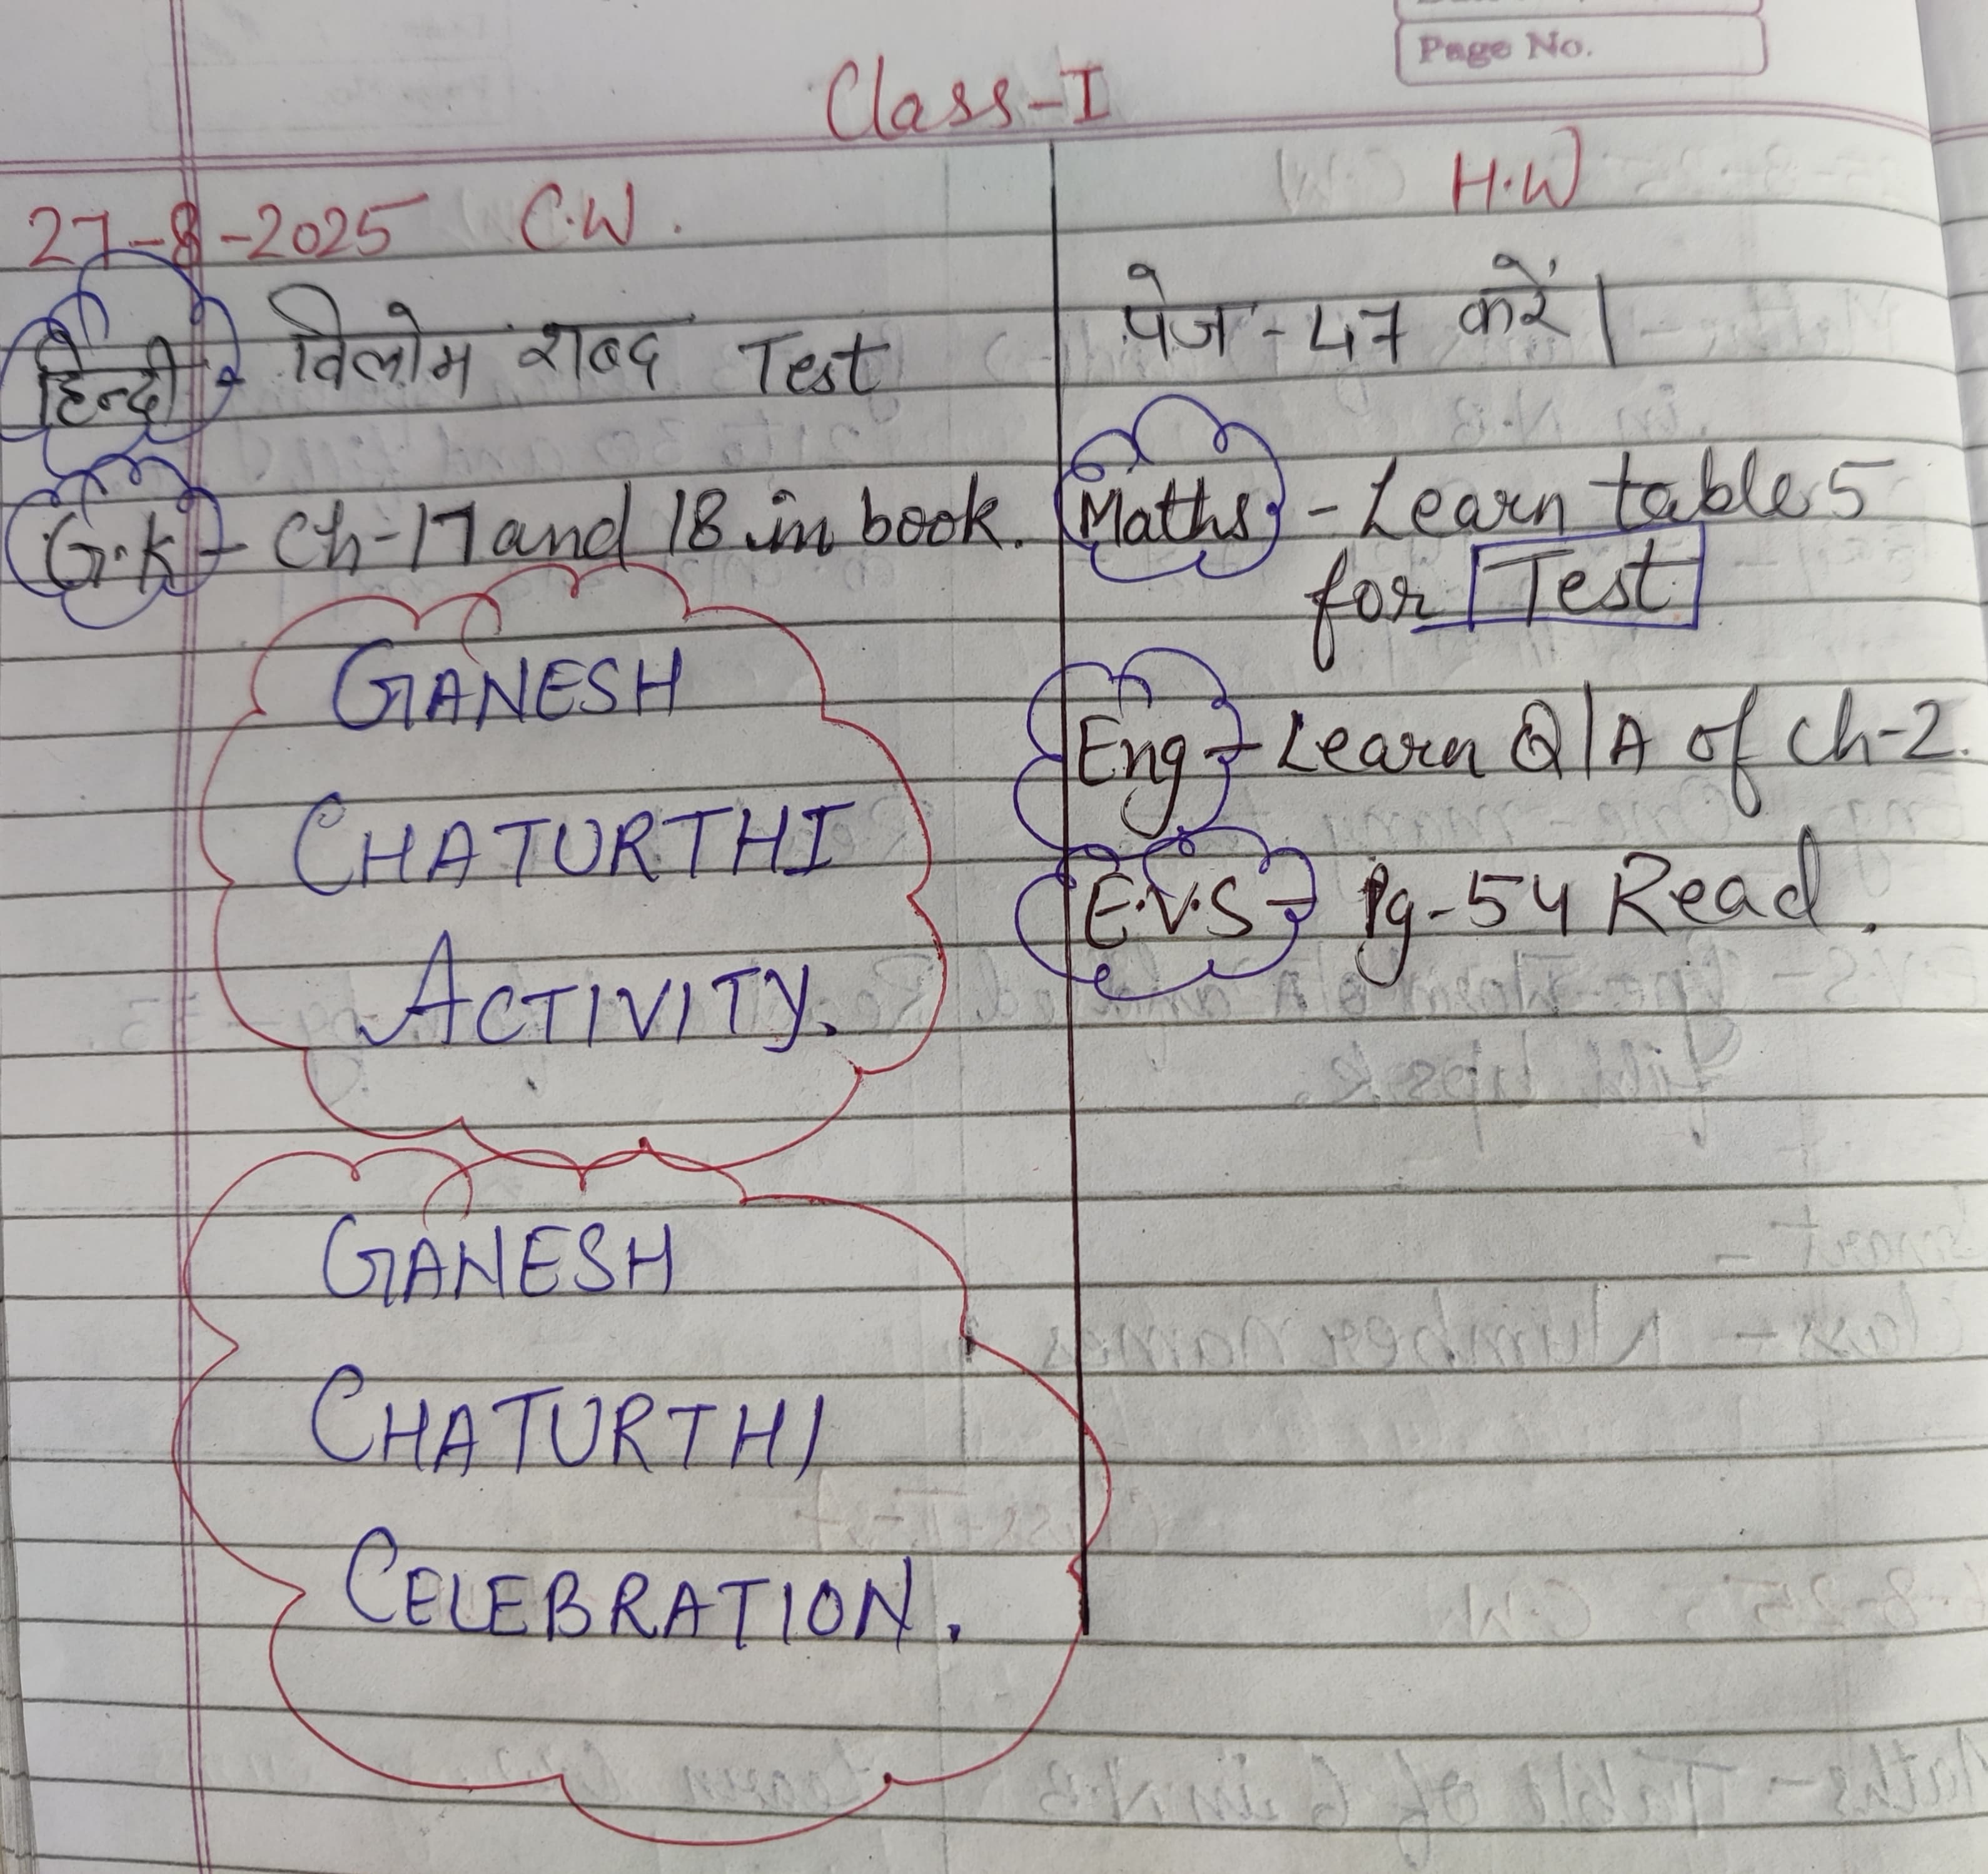 Page No.
Class-I
27-8-2025 C.W.
हिन्दी - विलोम शब्द Test
G.K - Ch-17 and 18 in book.
GANESH
CHATURTHI
ACTIVITY.
GANESH
CHATURTHI
CELEBRATION.
H.W
पेज - 47 करें।
Maths - Learn table 5
for Test
Eng - Learn Q/A of Ch-2.
E.V.S - Pg-54 Read.